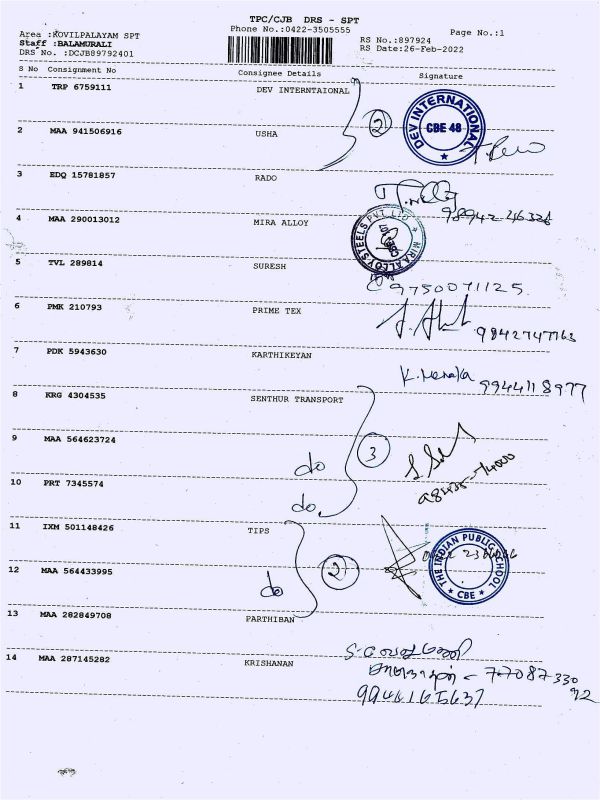 TPC/CJB DRS - SPT
Phone No.:0422-3505555
Page No.:1
Area :KOVILPALAYAM SPT
Staff :BALAMURALI
DRS No. :DCJB89792401
RS No.:897924
RS Date:26-Feb-2022
S No Consignment No Consignee Details Signature
1 TRP 6759111 DEV INTERNTAIONAL
2 MAA 941506916 USHA
2
DEV INTERNATIONAL
CBE 48
3 EDQ 15781857 RADO
98942 46328
4 MAA 290013012 MIRA ALLOY
MIRA ALLOY STEELS PVT LTD
5 TVL 289814 SURESH
9750071125
6 PMK 210793 PRIME TEX
9842747163
7 PDK 5943630 KARTHIKEYAN
K. Menaka 9944118977
8 KRG 4304535 SENTHUR TRANSPORT
9 MAA 564623724 do
3
10 PRT 7345574 do
11 IXM 501148426 TIPS
12 MAA 564433995 do
2
THE INDIAN PUBLIC SCHOOL
CBE
13 MAA 282849708 PARTHIBAN
14 MAA 287145282 KRISHANAN
77087 330
92
99441 65637